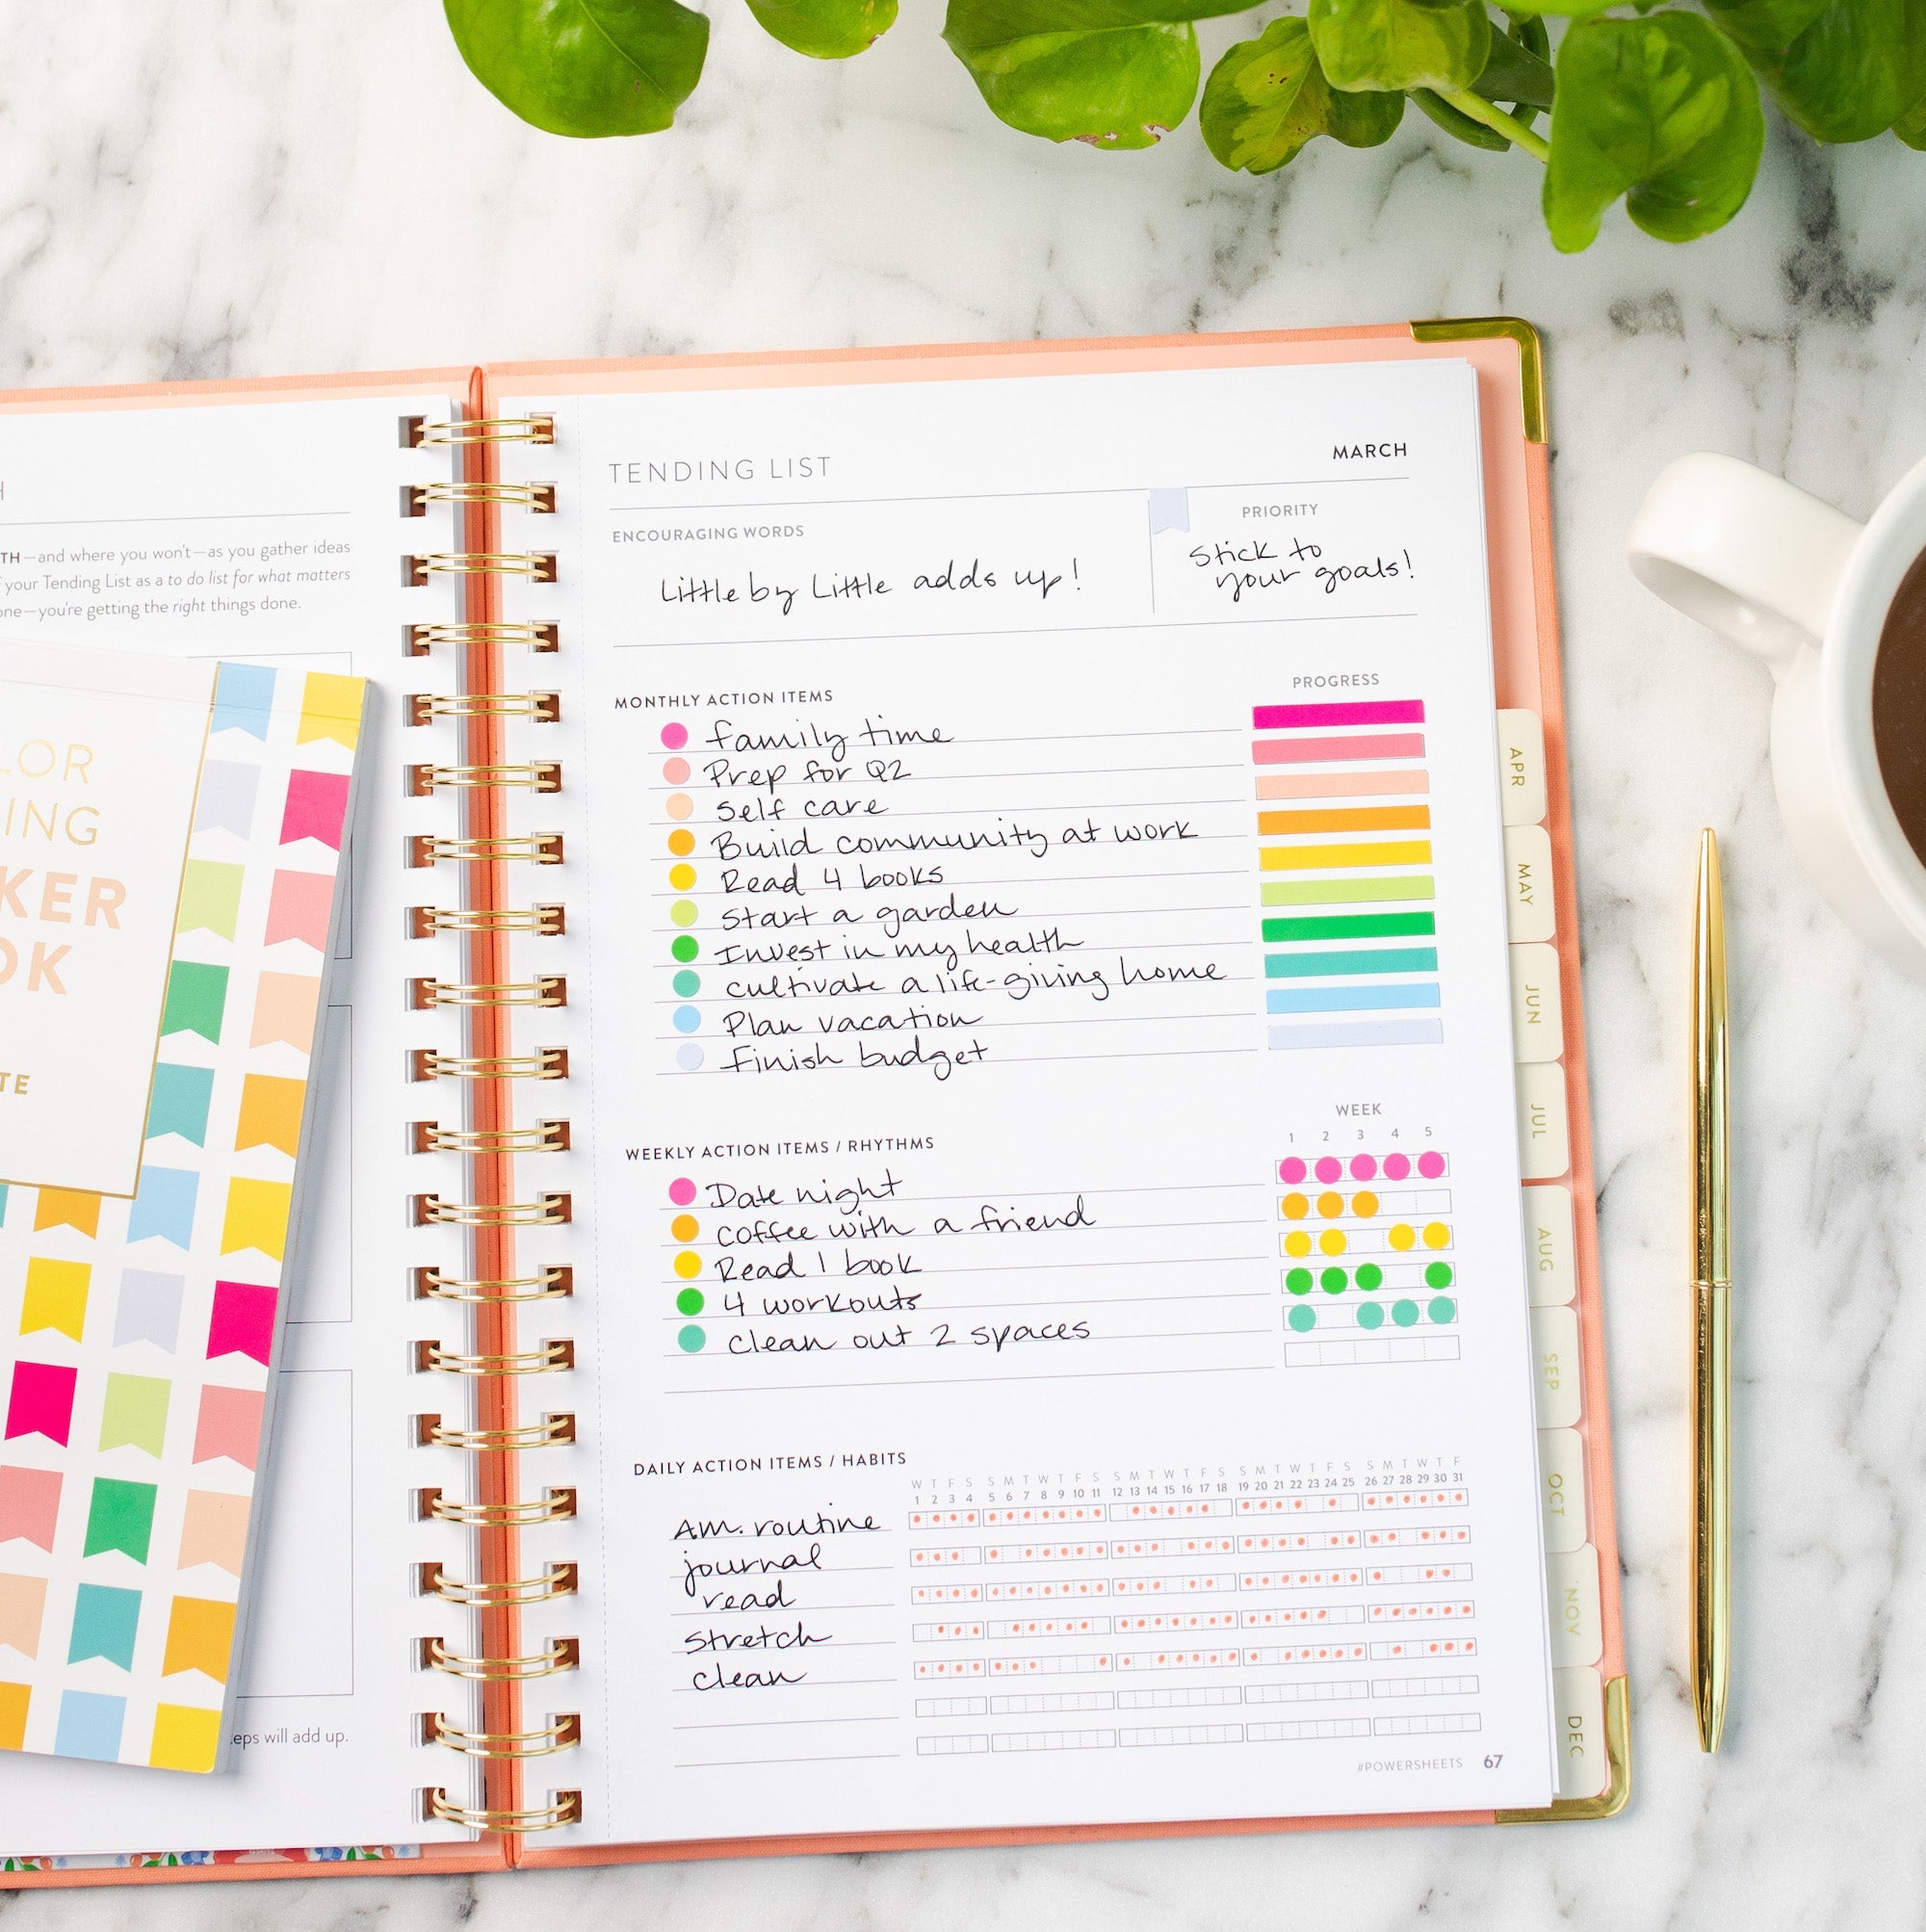 TH—and where you won't—as you gather ideas
your Tending List as a to do list for what matters
one—you're getting the right things done.
LOR
ING
KER
OK
TE
eps will add up.
TENDING LIST
MARCH
ENCOURAGING WORDS
PRIORITY
Little by Little adds up!
Stick to
your goals!
MONTHLY ACTION ITEMS
PROGRESS
family time
Prep for Q2
Self care
Build community at work
Read 4 books
Start a garden
Invest in my health
cultivate a life-giving home
Plan vacation
Finish budget
WEEKLY ACTION ITEMS / RHYTHMS
WEEK
1 2 3 4 5
Date night
coffee with a friend
Read 1 book
4 workouts
Clean out 2 spaces
DAILY ACTION ITEMS / HABITS
W T F S S M T W T F S S M T W T F S S M T W T F S S M T W T F
1 2 3 4 5 6 7 8 9 10 11 12 13 14 15 16 17 18 19 20 21 22 23 24 25 26 27 28 29 30 31
A.M. routine
journal
read
Stretch
Clean
#POWERSHEETS 67
APR
MAY
JUN
JUL
AUG
SEP
OCT
NOV
DEC